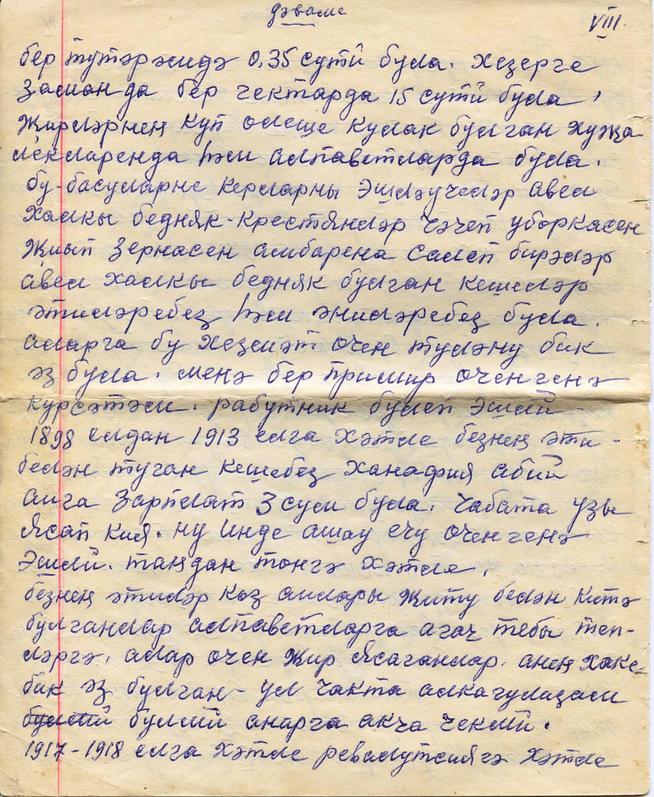 дәваме
VIII.
бер тутәрәмдә 0,35 сутй була. хезерге
заманда бер гектарда 15 сутй була,
Жирләрнең күп өлеше кулак булган хужа
лекларенда һәм алпаветларда була.
бу-басуларне керларны эшләүчеләр авел
халкы бедняк-крестяндәр чәчеп уборкасен
Жыып зернасен амбарена салеп бирәләр
авел халкы бедняк булган кешеләр
әтиләребез һәм әниләребез була.
аларга бу хезмәт өчен түләнү бик
әз була. менә бер пример өченгенә
күрсәтәм. работник булеп эшлй-
1898 елдан 1913 елга хәтле безнең әти-
белән туган кешебез Ханафия абий
анга зарплат 3 сум була. чабата үзы
ясап кия. ну инде ашау ечу өченгенә
эшлй. таңдан төнгә хәтле,
безнең әтиләр көз айлары житү белән китә
булганлар алпаветларга агач төбы төп-
ләргә. алар өчен жир ясаганлар. анең хаке
бик әз булган - ул чакта алкагулизам
булмй анарга акча чекмй.
1917-1918 елга хәтле револютсиягә хәтле